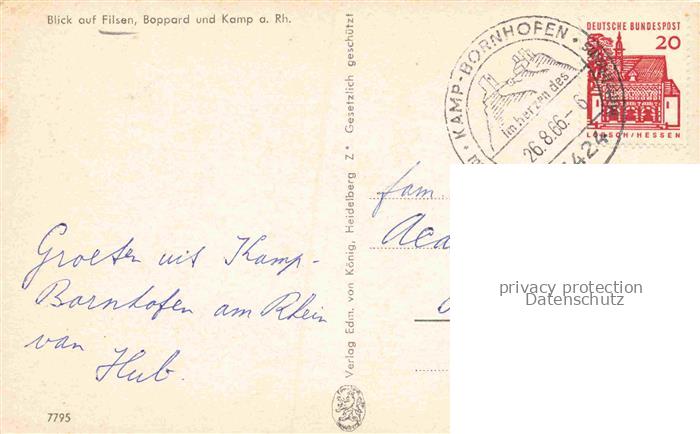 Blick auf Filsen, Boppard und Kamp a. Rh.
Groeten uit Kamp-
Bornhofen am Rhein
van Hub.
7795
Verlag Edm. von König, Heidelberg Z* Gesetzlich geschützt
KAMP-BORNHOFEN
im herzen des
26.8.66.- 6
5424
DEUTSCHE BUNDESPOST
20
LORSCH/HESSEN
fam.
privacy protection
Datenschutz